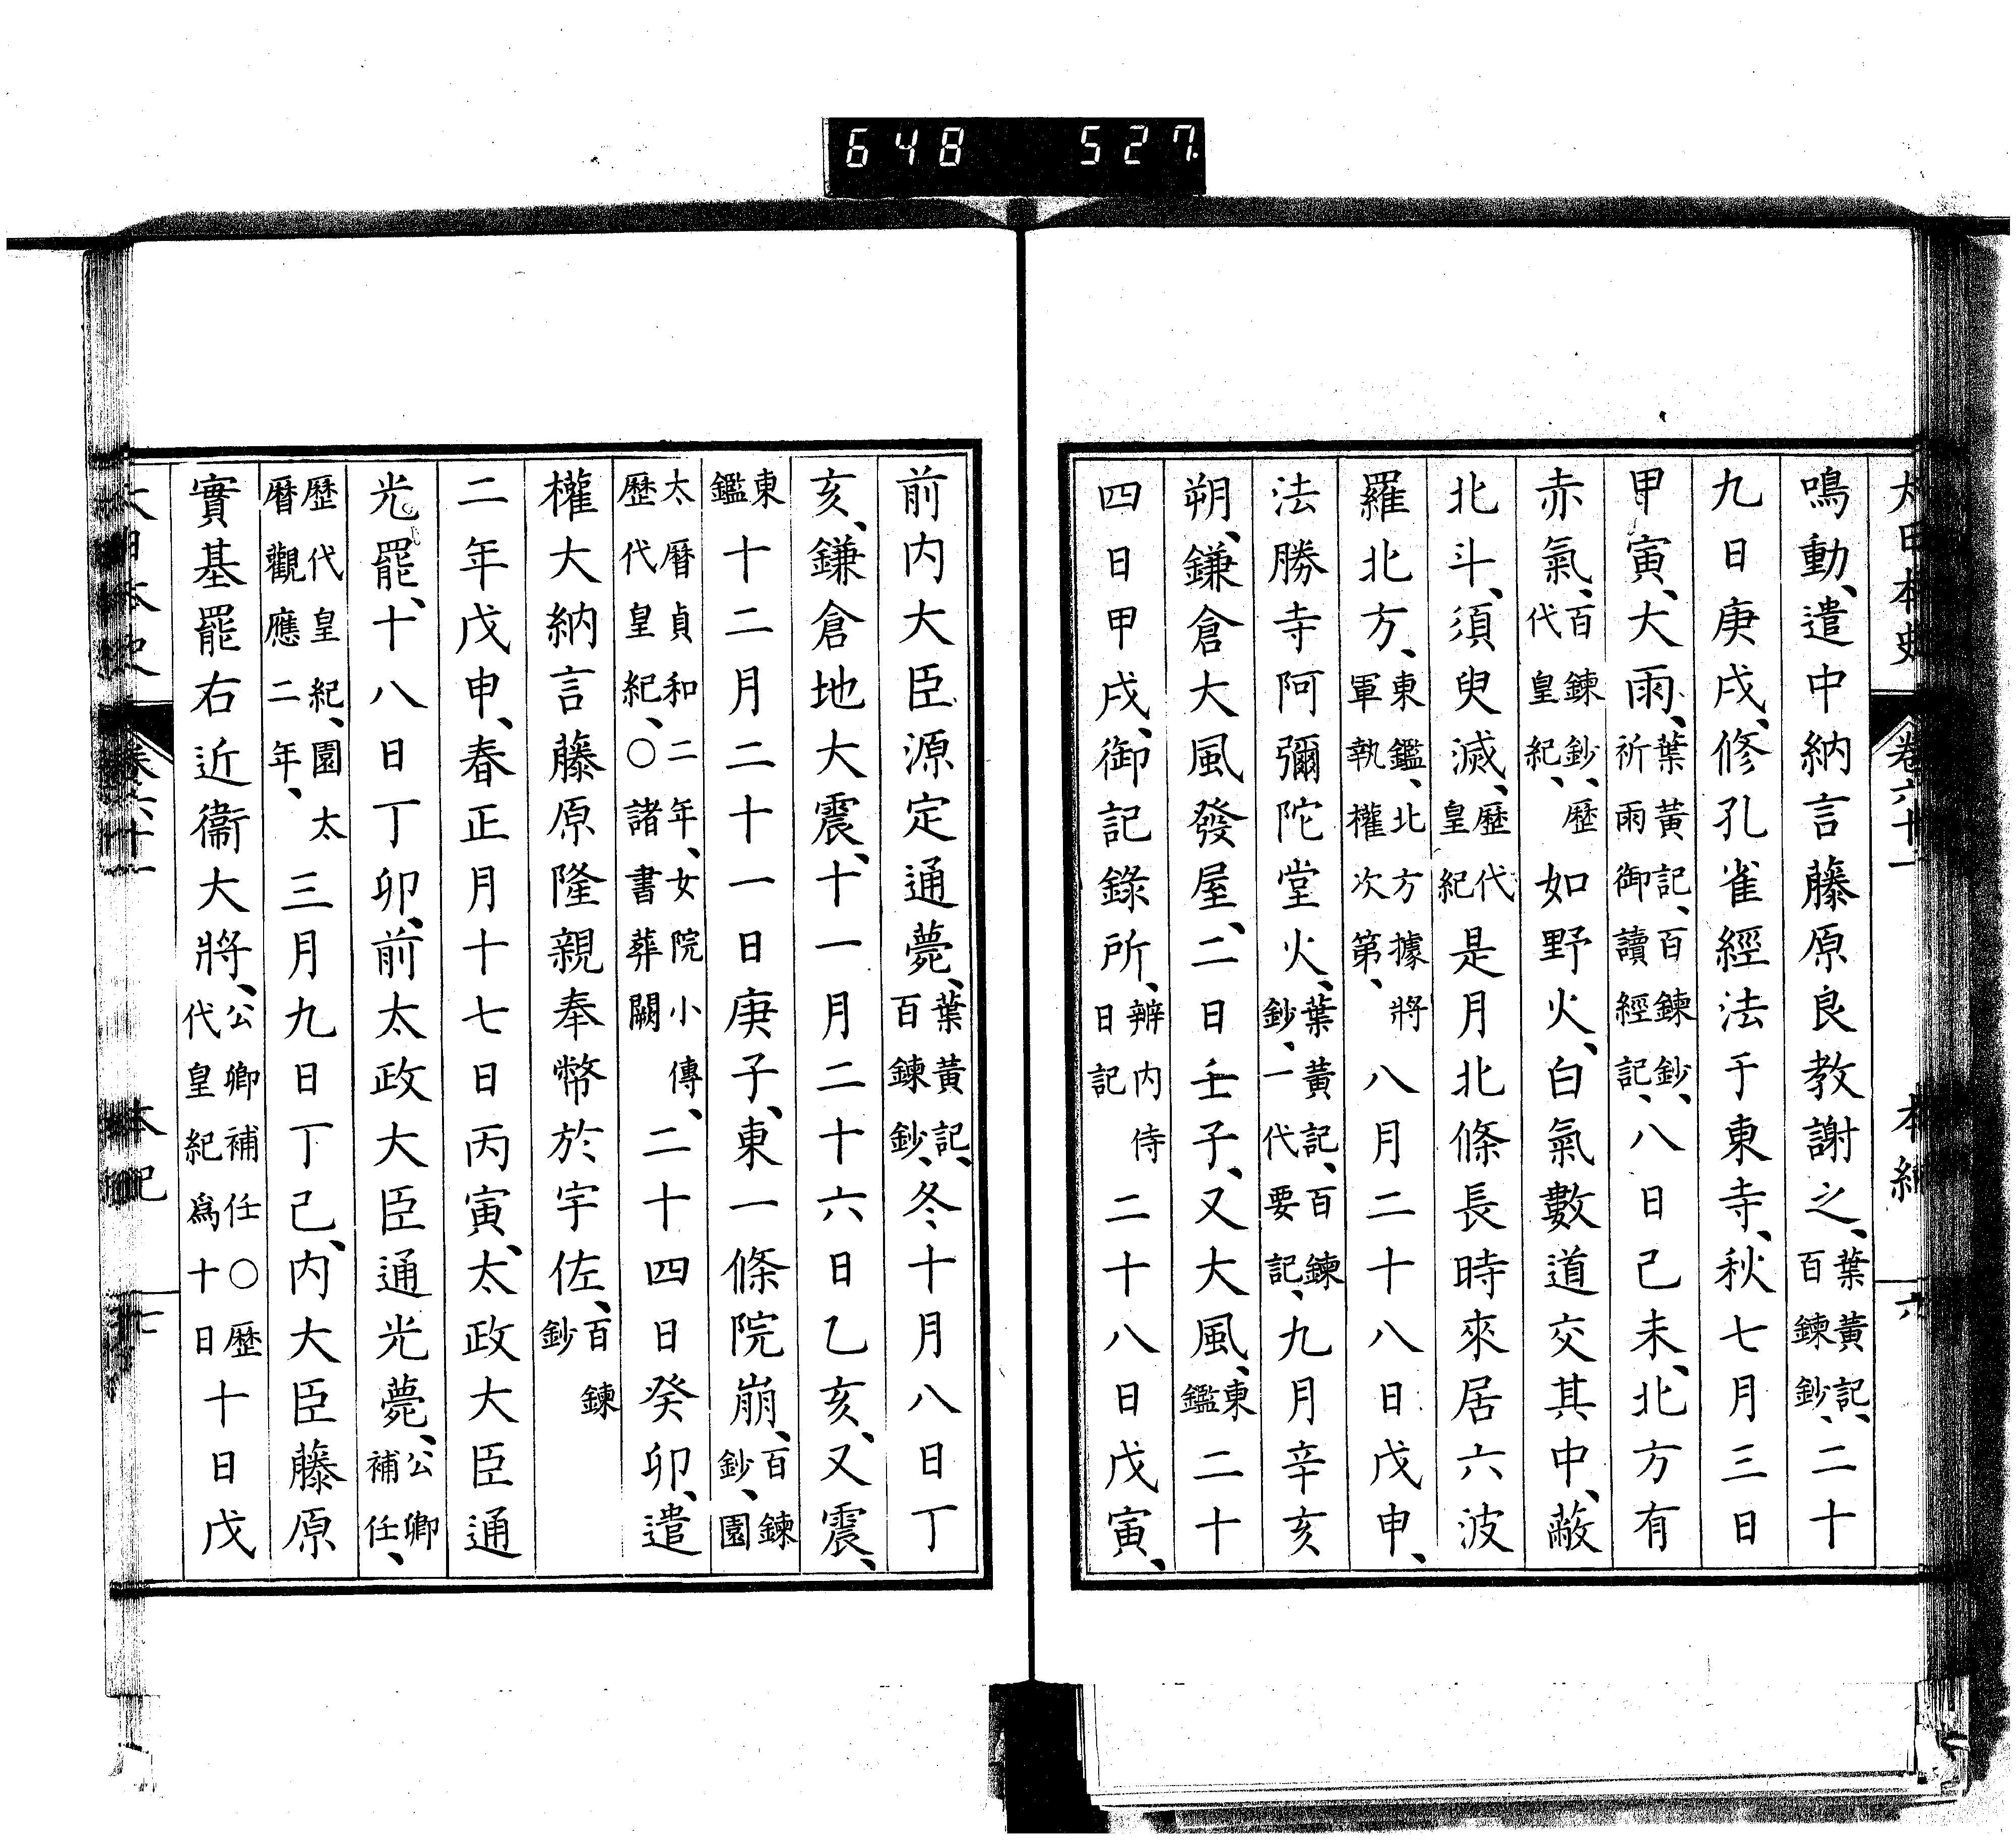 648 527
大日本史 卷六十一 本紀 六
鳴動、遣中納言藤原良教謝之、葉黃記、百鍊鈔、二十
九日庚戌、修孔雀經法于東寺、秋七月三日
甲寅、大雨、葉黃記、百鍊鈔、祈雨御讀經記、八日己未、北方有
赤氣、百鍊鈔、歷代皇紀、如野火、白氣數道交其中、蔽
北斗、須臾滅、歷代皇紀是月北條長時來居六波
羅北方、東鑑、北方據將軍執權次第、八月二十八日戊申、
法勝寺阿彌陀堂火、葉黃記、百鍊鈔、一代要記、九月辛亥
朔、鎌倉大風發屋、二日壬子、又大風、東鑑二十
四日甲戌、御記錄所、辨內侍日記二十八日戊寅、
前内大臣源定通薨、葉黃記、百鍊鈔、冬十月八日丁
亥、鎌倉地大震、十一月二十六日乙亥、又震、
東鑑十二月二十一日庚子、東一條院崩、百鍊鈔、園
太曆貞和二年、女院小傳、歷代皇紀、○諸書葬闕二十四日癸卯、遣
權大納言藤原隆親奉幣於宇佐、百鍊鈔
二年戊申、春正月十七日丙寅、太政大臣通
光罷、十八日丁卯、前太政大臣通光薨、公卿補任、
歷代皇紀、園太曆觀應二年、三月九日丁己、内大臣藤原
實基罷右近衞大將、公卿補任○歷代皇紀爲十日十日戊
大日本史 卷六十一 本紀 七